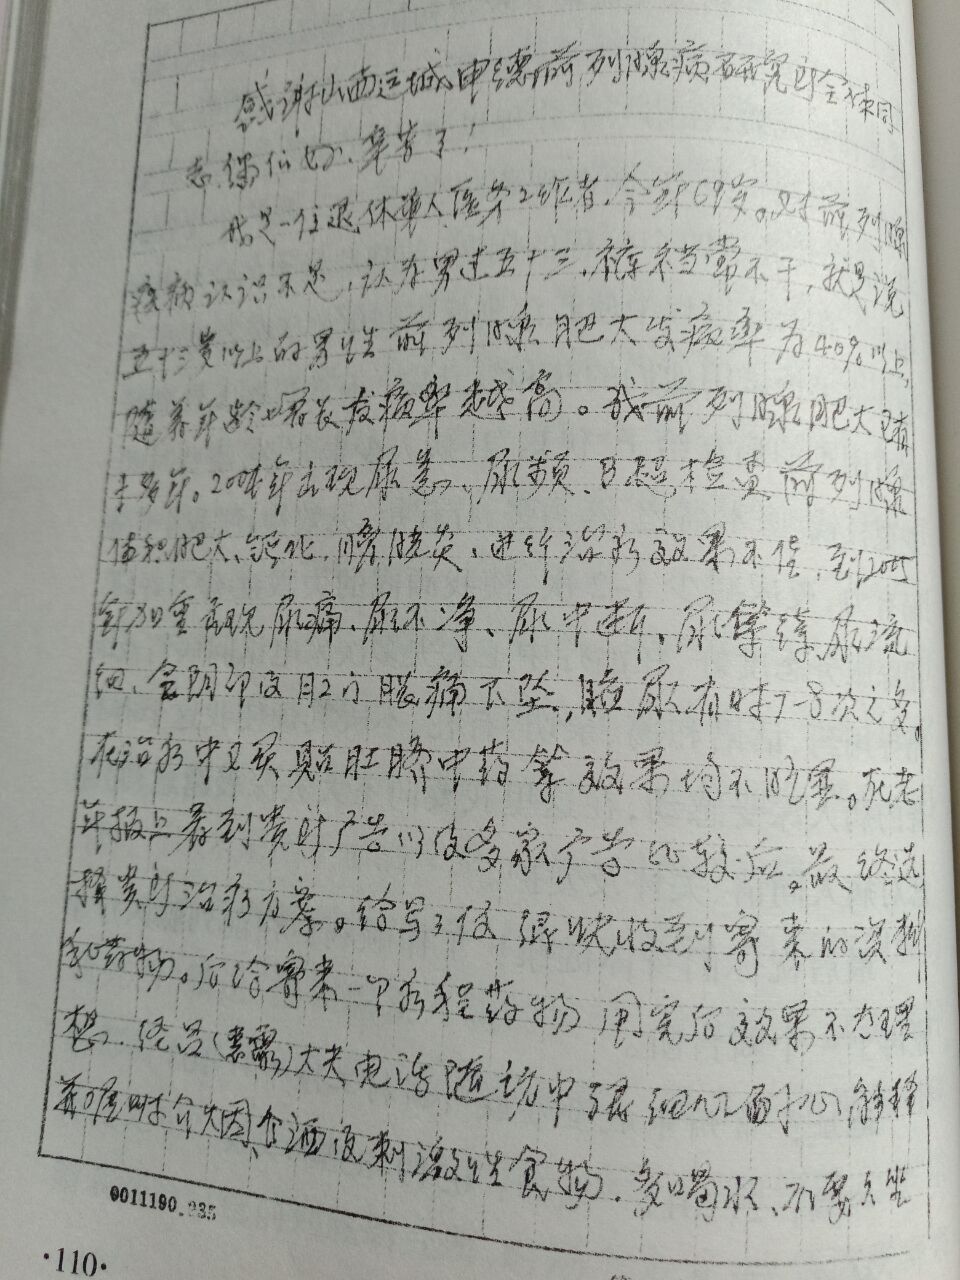 感谢山西运城中德前列腺病研究所全体同
志,你们好,辛苦了!
我是一位退休军人医务工作者,今年69岁。对前列腺
疾病认识不足,认为男过五十三,裤裆常不干,就是说
五十三岁以上的男性前列腺肥大发病率为40%以上,
随着年龄增长发病率越高。我前列腺肥大已有
十多年。年出现尿急、尿频、B超检查前列腺
体积肥大、钙化、膀胱炎,进行治疗效果不佳,到2005
年加重出现尿痛、尿不净、尿中断、尿等待、尿流
细、会阴部及肛门胀痛下坠,夜尿有时7-8次之多。
在治疗中又买贴肚脐中药等效果均不明显。在老
年报上看到贵所广告以及多家广告比较后,最终选
择贵所治疗方案。给写了信很快收到寄来的资料
和药物。后给寄来一个疗程药物用完后效果不太理
想,经吕()大夫电话随访中很细心耐心解释
并嘱咐 食酒及刺激性食物,多喝水、不要久坐
0011190.035
·110·